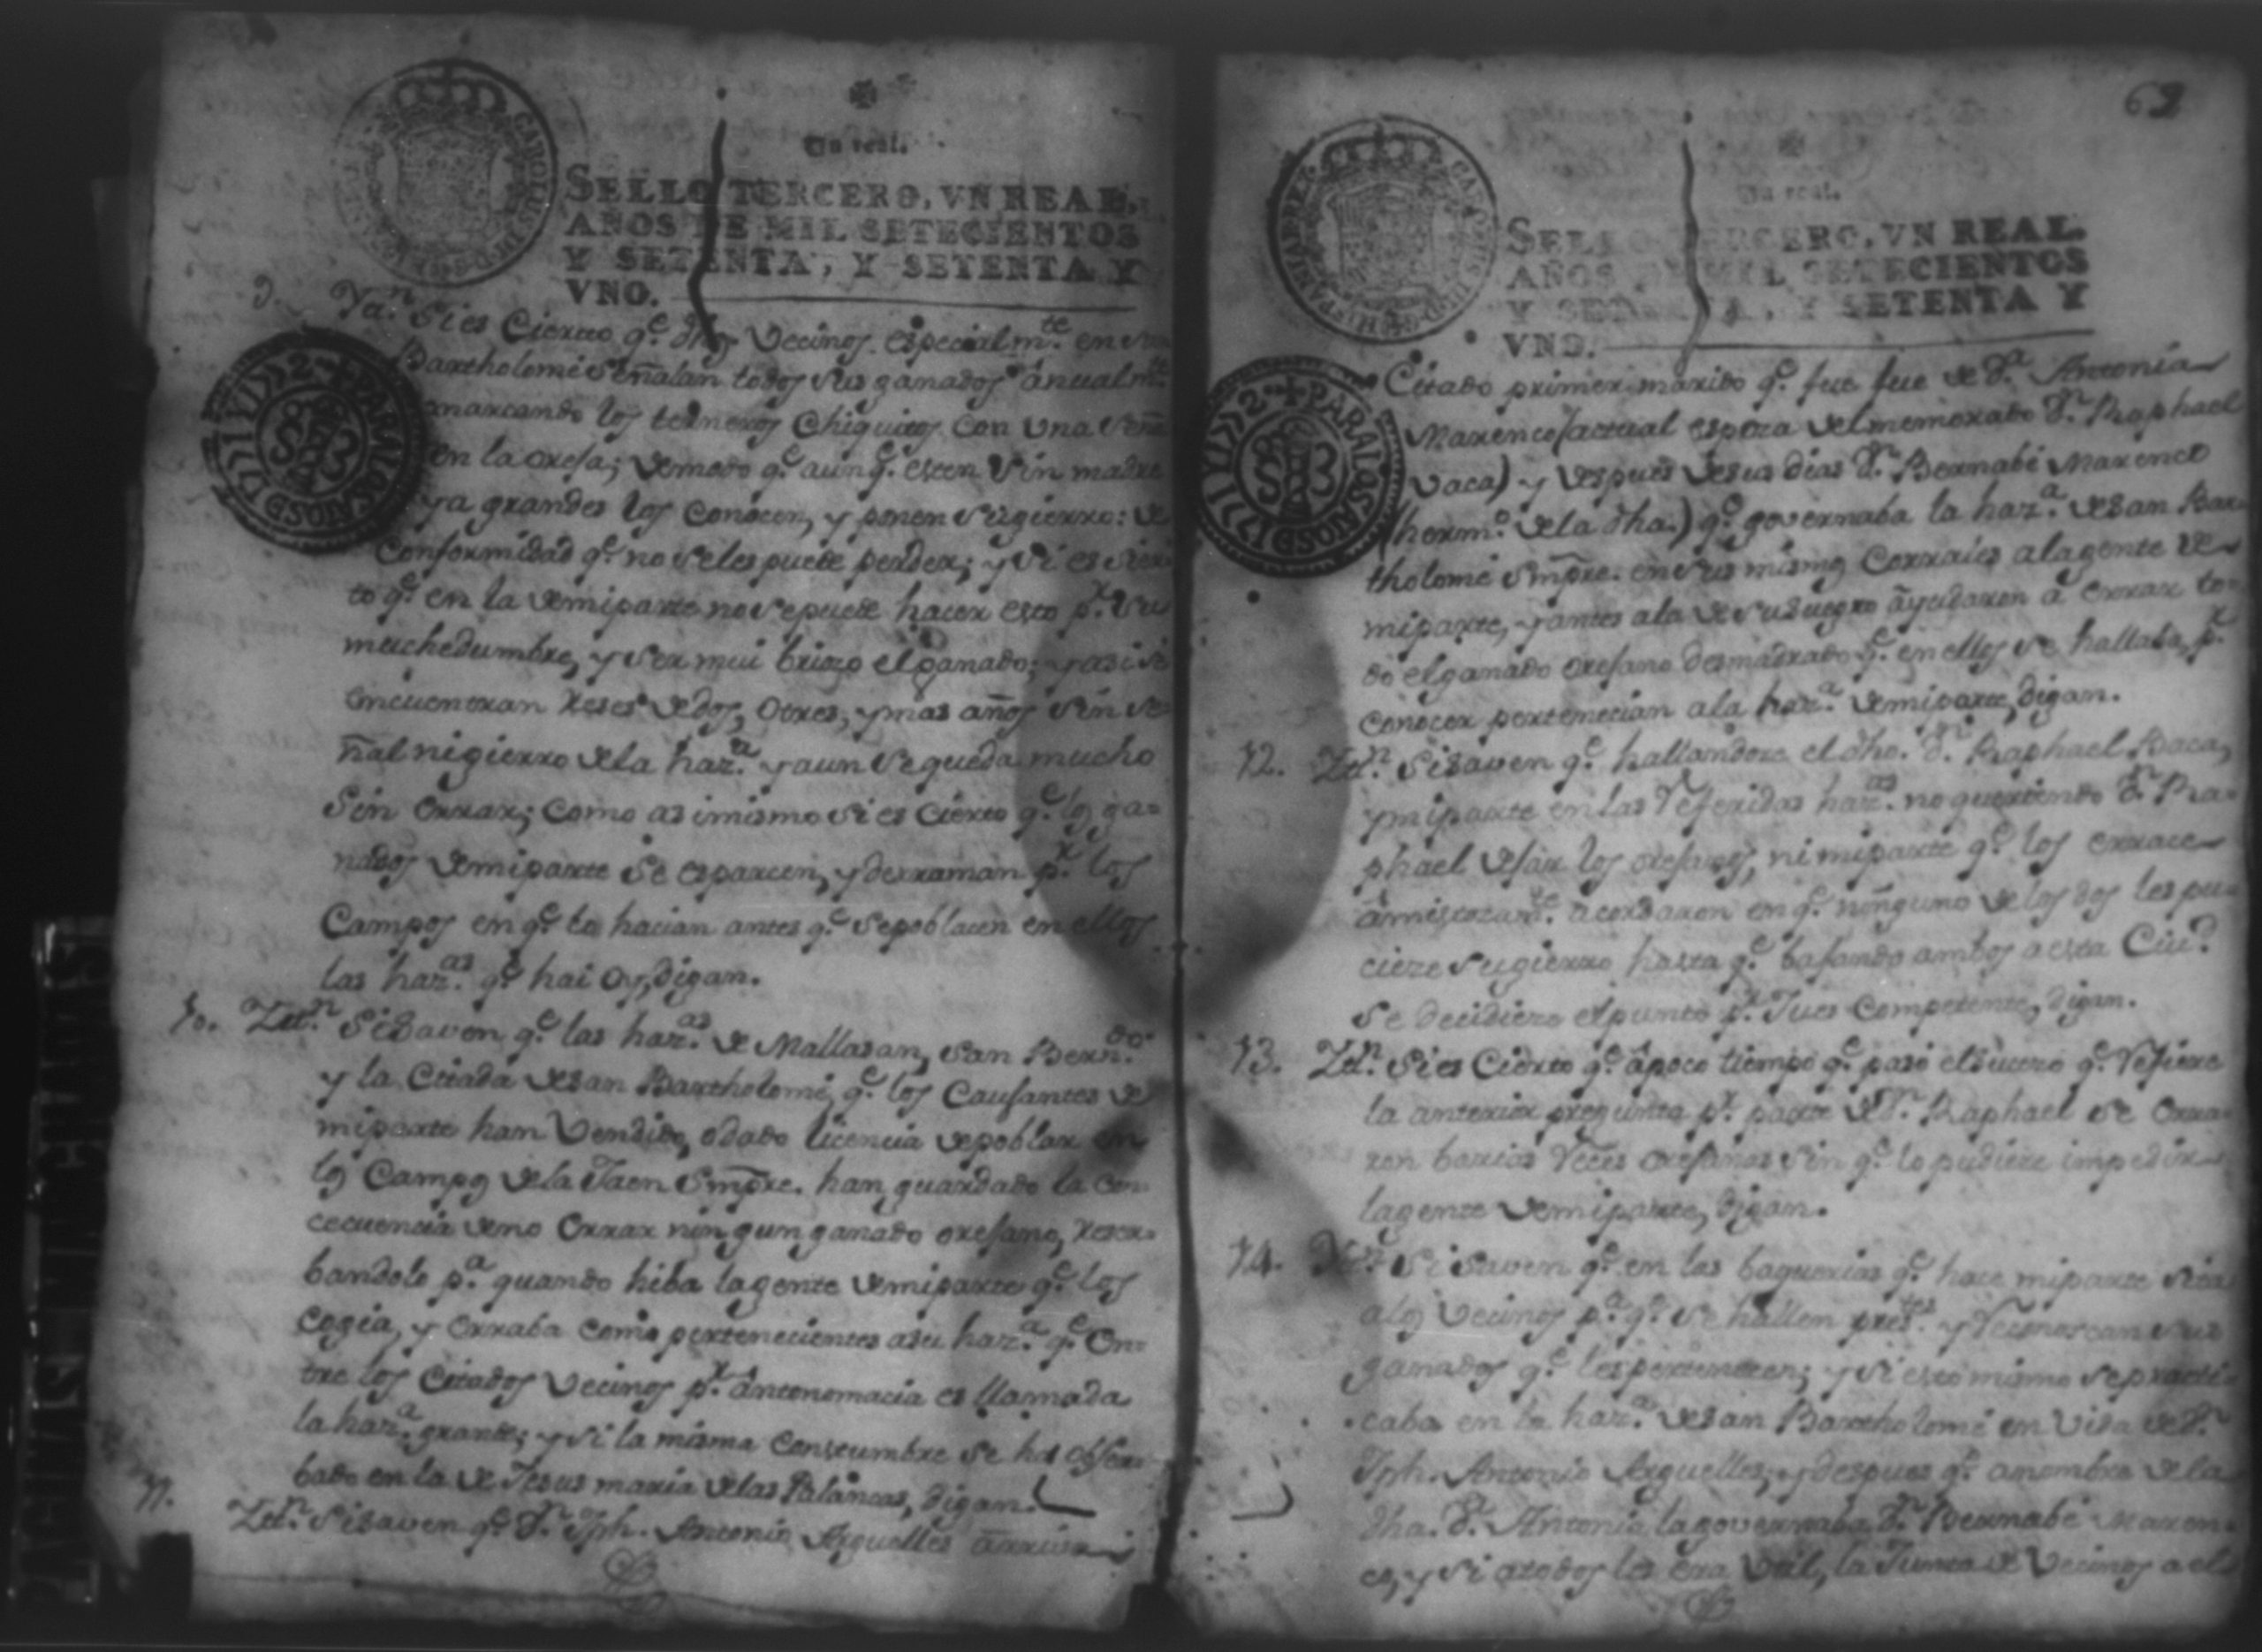 Un real.
SELLO TERCERO, VN REAL,
AÑOS DE MIL SETECIENTOS
Y SETENTA, Y SETENTA Y
VNO.
9. Yttn. Si es Cierto qe. dhos Vecinos especialmte. en San
Bartholomé señalan todos sus ganados anualmte.
marcando los terneros Chiquitos con una señal
en la oreja; demodo qe. aunqe. esten sin madre
ya grandes los conocen, y ponen sugierro: de
Conformidad qe. no seles puede perder; y si es sier-
to qe. en la demiparte no sepuede hacer esto pr. su
muchedumbre, y ser mui brioso elganado; y asi se
encuentran reses de dos, otres, ymas años sin se-
ñal nigierro dela haza. yaun sequeda mucho
Sin errar; como asimismo si es cierto qe. los ga-
nados demiparte se esparcen, yderraman pr. los
Campos en qe. lo hacian antes qe. sepoblacen en ellos
las hazas. qe. hai oy, digan.
10. Ittn. Sisaven qe. las hazas. de Mallasan, San Berndo.
y la Citada desan Bartholomé, qe. los Causantes de
miparte han Vendido, odado licencia depoblar en
los Campos dela Jaen Smpre. han guardado la con-
cecuencia deno errar ningun ganado orejano, reser-
bandolo pa. quando hiba lagente demiparte qe. los
cogia, y erraba como pertenecientes asu haza. qe. en-
tre los Citados Vecinos pr. antonomacia es llamada
la haza. grande; y si la misma Constumbre se ha obser-
bado en la de Jesus maria delas Palancas, digan.
11. Ittn. Sisaven qe. Dn. Jph. Antonio Arguelles arriva
69
Un real.
SELLO TERCERO, VN REAL
AÑOS DE MIL SETECIENTOS
Y SETENTA, Y SETENTA Y
VNO.
Citado primer marido qe. fue fue de Da. Antonia
Marenco (actual esposa del memorado Dn. Raphael
Vaca) y despues desus dias Dn. Bernabé Marenco
(hermo. dela dha.) qe. governaba la haza. desan Bar-
tholomé Smpre. en sus mismos Corrales alagente de
miparte, yantes ala de susuegro ayudaron á errar to-
do elganado orejano desmadrado qe. en ellos se hallaba, pr.
conocer pertenecian ala haza. demiparte, digan.
12. Ittn. Sisaven qe. hallandose el dho. Dn. Raphael Baca,
ymiparte en las referidas hazas. no queriendo Dn. Ra-
phael dejar los orejanos, ni miparte qe. los errace
amistozamte. acordaron en qe. ninguno de los dos les pu-
cieze sugierro hasta qe. bajando ambos a esta Ciud.
Se decidieze elpunto pr. Jues Competente, digan.
13. Ittn. Si es Cierto qe. apoco tiempo qe. pasó elsucezo qe. refiere
la anterior pregunta pr. parte de Dn. Raphael se erra-
ron barias reces orejanas sin qe. lo pudieze impedir
lagente demiparte, digan.
14. Ittn. Si saven qe. en las baquerias qe. hace miparte cita
alos Vecinos pa. qe. se hallen prestes. y reconoscan sus
ganados qe. les pertenecen; y si esto mismo sepracti-
caba en la haza. desan Bartholomé en Vida de Dn.
Jph. Antonio Arguelles, y despues qe. anombre dela
dha. Da. Antonia lagovernaba Dn. Bernabé Maren-
co, y si atodos les era Util, la Junta de Vecinos a el